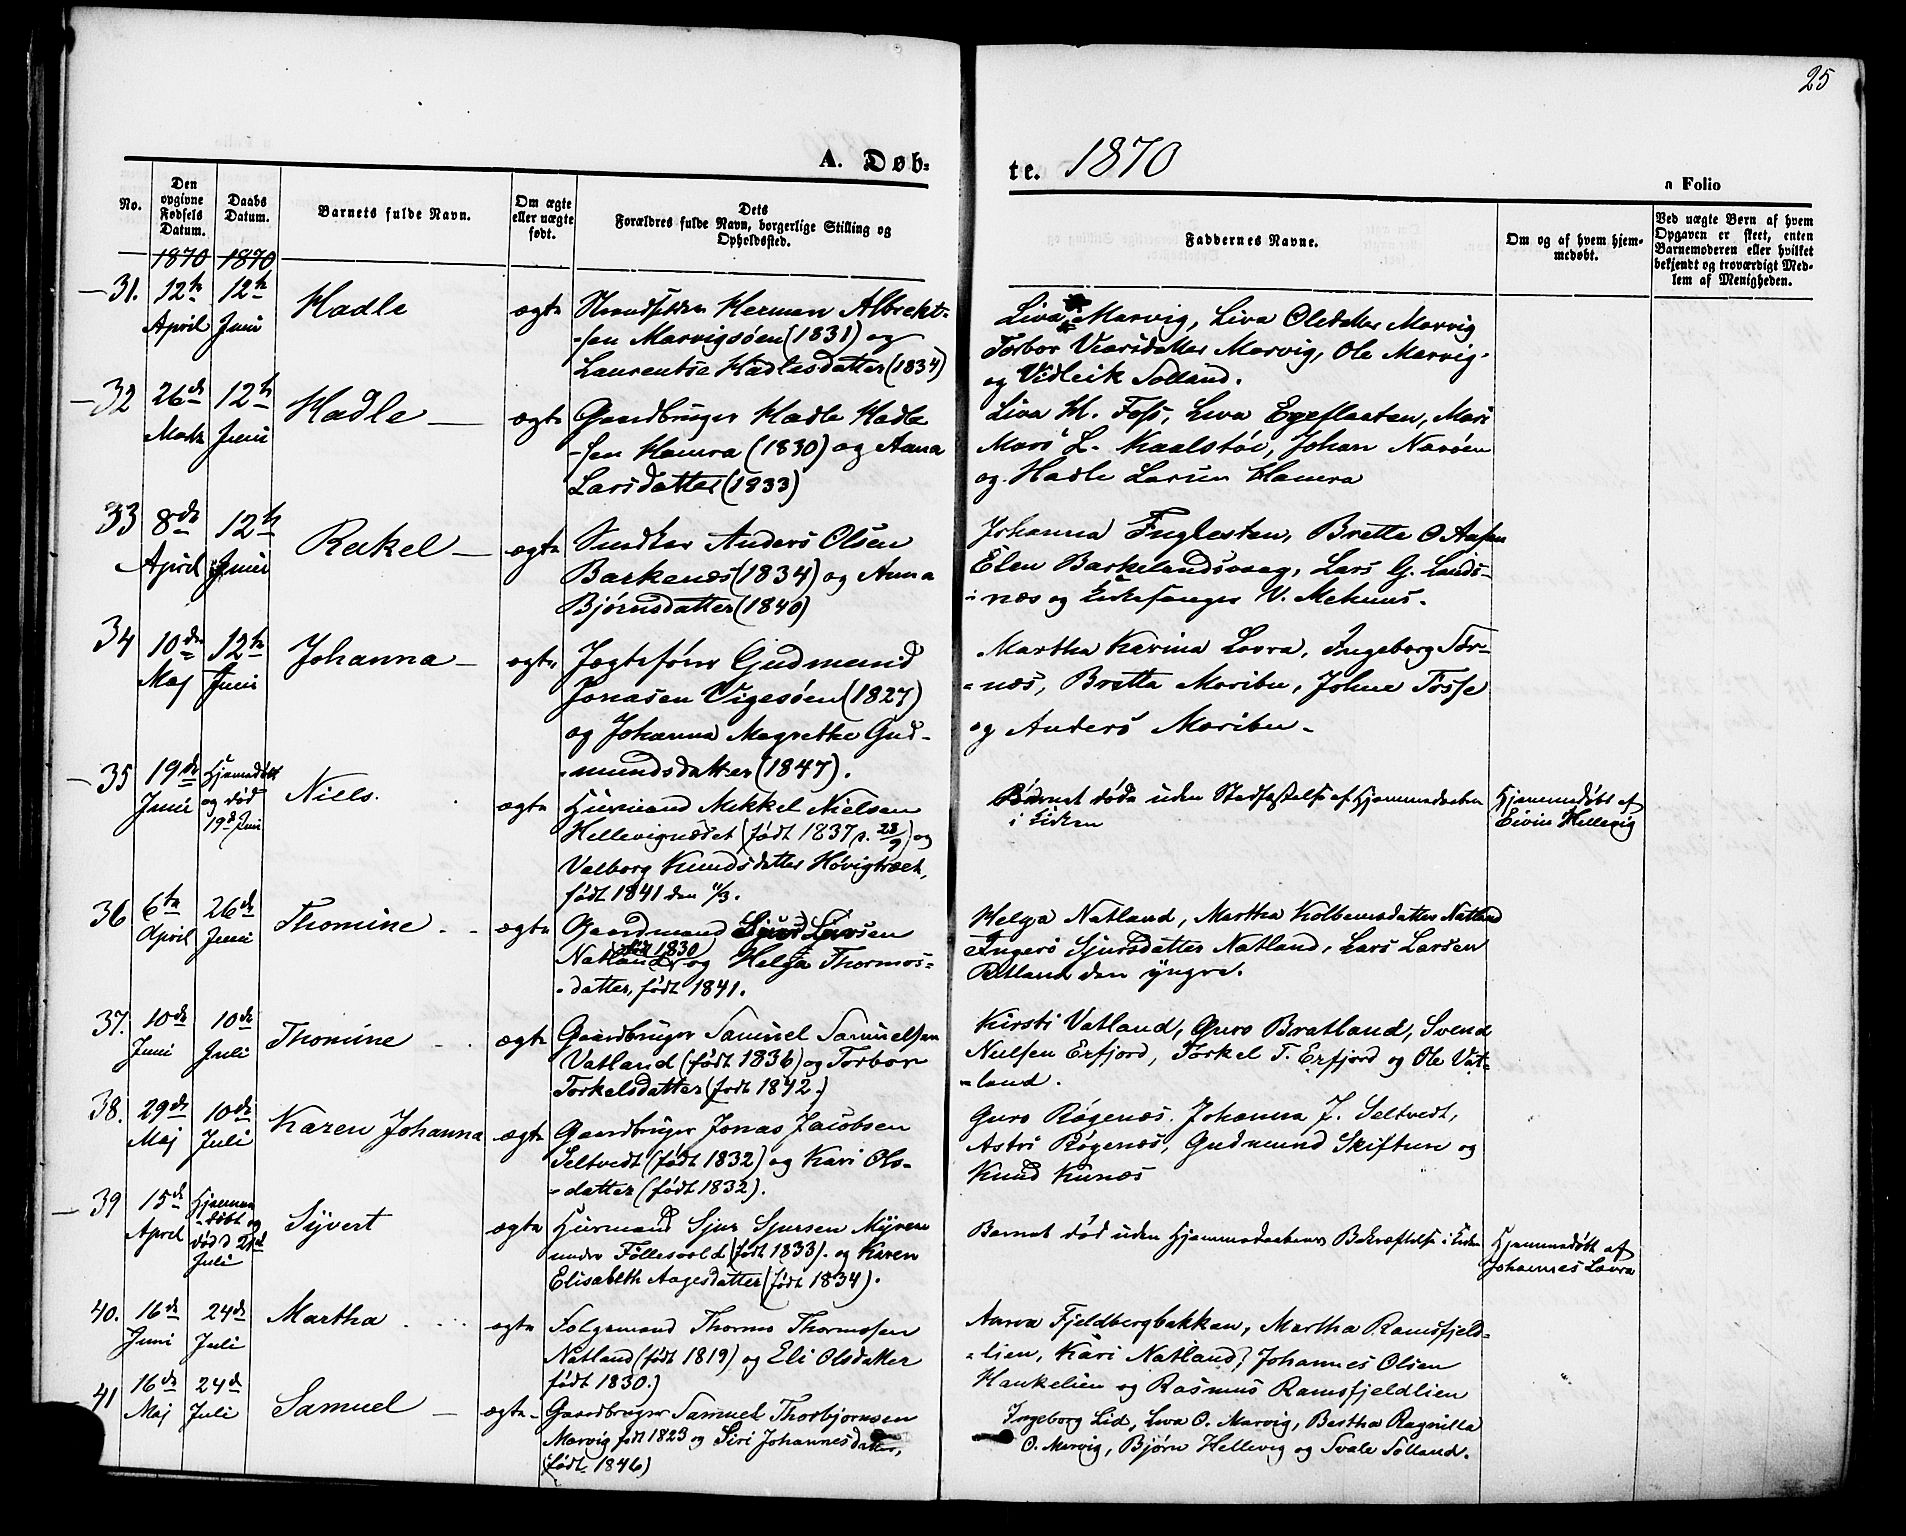 25
A. Døb=
te. 1870
a Folio
No.
Den opgivne Fødsels Datum.
Daabs Datum.
Barnets fulde Navn.
Om ægte eller uægte født.
Dets Forældres fulde Navn, borgerlige Stilling og Opholdssted.
Faddernes Navne.
Om og af hvem hjemmedøbt.
Ved uægte Børn af hvem Opgaven er skeet, enten Barnemoderen eller hvilket bekjendt og troværdigt Medlem af Menigheden.
1870 1870
31. 12te April 12te Juni Hadle ægte
Herman Albrekt-
-sen Marvigsøen (1831) og
Laurentse Hadlesdatter (1834)
Liva Marvig, Liva Olsdatter Marvig
Torbor Marvig, Ole Marvig
og Vidleik Solland.
32 26de 12te Juni Hadle ægte
Gaardbruger Hadle Hadle
-sen Hamra (1830) og Anna
Larsdatter (1833)
Liva H. Foss, Liva Egeflaaten, Mari
L. Kaalstøe, Johan Narøen
og Hadle Larsen Hamra
33 8de April 12te Juni Rakel ægte
Anders Olsen
Barkenæs (1834) og Anna
Bjørnsdatter (1840)
Johanna Fuglesteen, Bretta O
Elen Barkelandsvaag, Lars G. Lands-
-næs og Kirkesanger V. Mehuus.
34 10de Maj 12te Juni Johanna ægte
Jægtefører Gudmund
Jonasen Vigesøen (1827)
og Johanna Magrethe Gud-
-mundsdatter (1847).
Martha Karina Lovra, Ingeborg Tør-
-næs, Bretta Maribu, Johne Fosse
og Anders Maribu
35 19de Juni Hjemmedøbt og død 19de Juni Niels. ægte
Huusmand Mekkel Nielsen
Hellevignæset (født 1837 d. 23/9) og
Valborg Knudsdatter Høvigtræet,
født 1841 den 11/3.
Barnet døde uden Stadfæstelse af Hjemmedaaben
i Kirken
Hjemmedøbt af
Eivin Hellevig
36 6te April 26de Juni Thomine ægte
Gaardmand Sjur Larsen
Natland født 1830 og Helga Thormos-
-datter, født 1841.
Helga Natland, Martha Kolbensdatter Natland
Ingers Sjursdatter Natland, Lars Larsen
Natland den yngre.
37. 10de Juni 10de Juli Thomine ægte
Gaardbruger Samuel Samuelsen
Vatland (født 1836) og Torbor
Torkelsdatter (født 1842.)
Kirsti Vatland, Guro Bratland, Svend
Nielsen Erfjord, Torkel T. Erfjord og Ole Vat-
-land.
38. 29de Maj 10de Juli Karen Johanna ægte
Gaardbruger Jonas Jacobsen
Seltvedt (født 1832) og Kari Ols-
-datter (født 1832).
Guro Røgenæs. Johanna J. Seltvedt,
Astri Røgenæs, Gudmund Skiftun og
Knud Kunæs
39 15de April Hjemme-døbt og død d 21de Juli Syvert ægte
Huusmand Sjur Sjursen Myren
under Føllesvold (født 1833). og Karen
Elisabeth Aagesdatter (født 1834).
Barnet død uden Hjemmedaabens Bekræftelse i Kirken
Hjemmedøbt af
Johannes Lovra
40. 16de Juni 24de Juli Martha ægte
Folgemand Thormo Thormosen
Natland (født 1819) og Eli Olsdatter
født 1830.)
Anna Fjeldbergbakken, Martha Ramsfjeld-
-lien, Kari Natland, Johannes Olsen
Hankelien og Rasmus Ramsfjeldlien
41 16de Maj 24de Juli Samuel ægte
Gaardbruger Samuel Thorbjørnsen
Marvig født 1823 og Siri Johannesdatter,
(født 1846)
Ingeborg Lid, Liva O. Marvig, Bertha Ragnilla
O. Marvig, Bjørn Hellevig og Svale Solland.